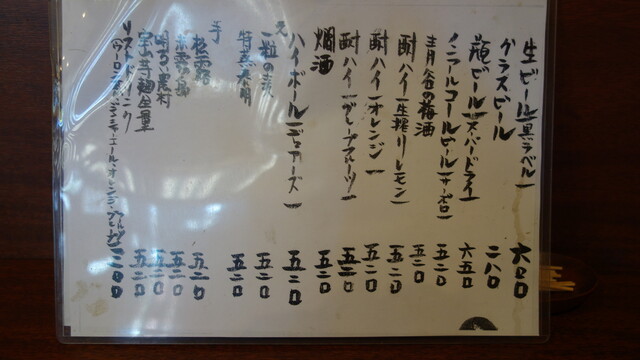 生ビール(黒ラベル) 六〇〇
グラスビール 二八〇
瓶ビール(スーパードライ) 六五〇
ノンアルコールビール(サッポロ) 五二〇
青谷の梅酒 五二〇
酎ハイ(生搾りレモン) 五二〇
酎ハイ(オレンジ) 五二〇
酎ハイ(グレープフルーツ) 五二〇
燗酒 五二〇
ハイボール(デュアーズ) 五二〇
一粒の麦 五二〇
特蒸泰明 五二〇
芋
松露 五二〇
五二〇
明るい農村 五二〇
五二〇
ソフトドリンク
(ウーロン・ジンジャーエール・オレンジ・ 二八〇